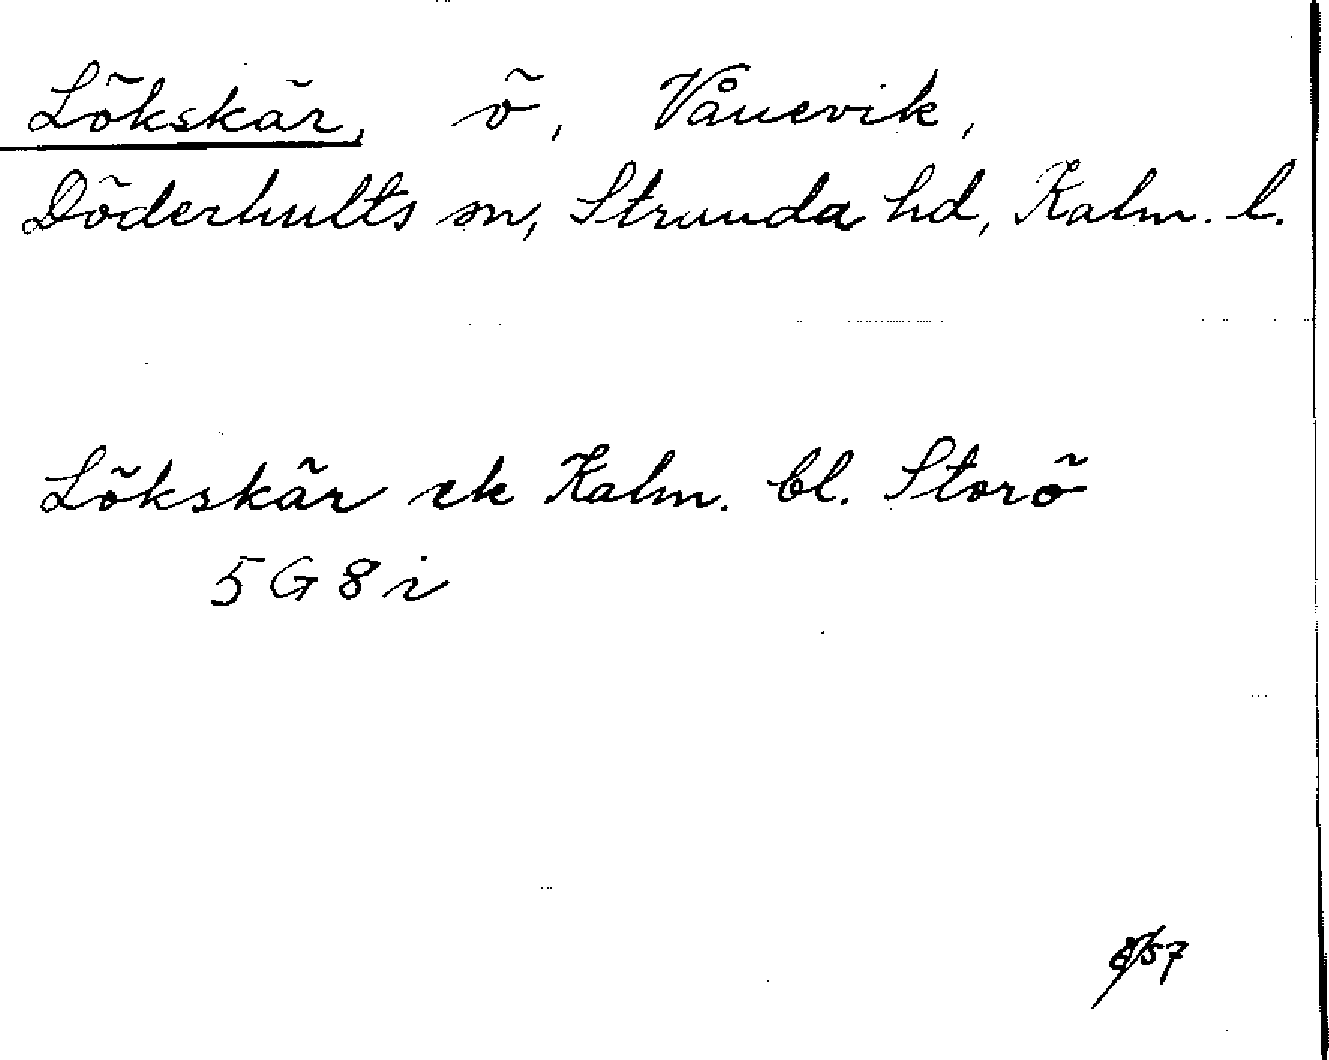 Lökskär, ö, Vånevik,
Döderhults sn, Stranda hd, Kalm. l.
Lökskär ek Kalm. bl. Storö
5 G 8 i